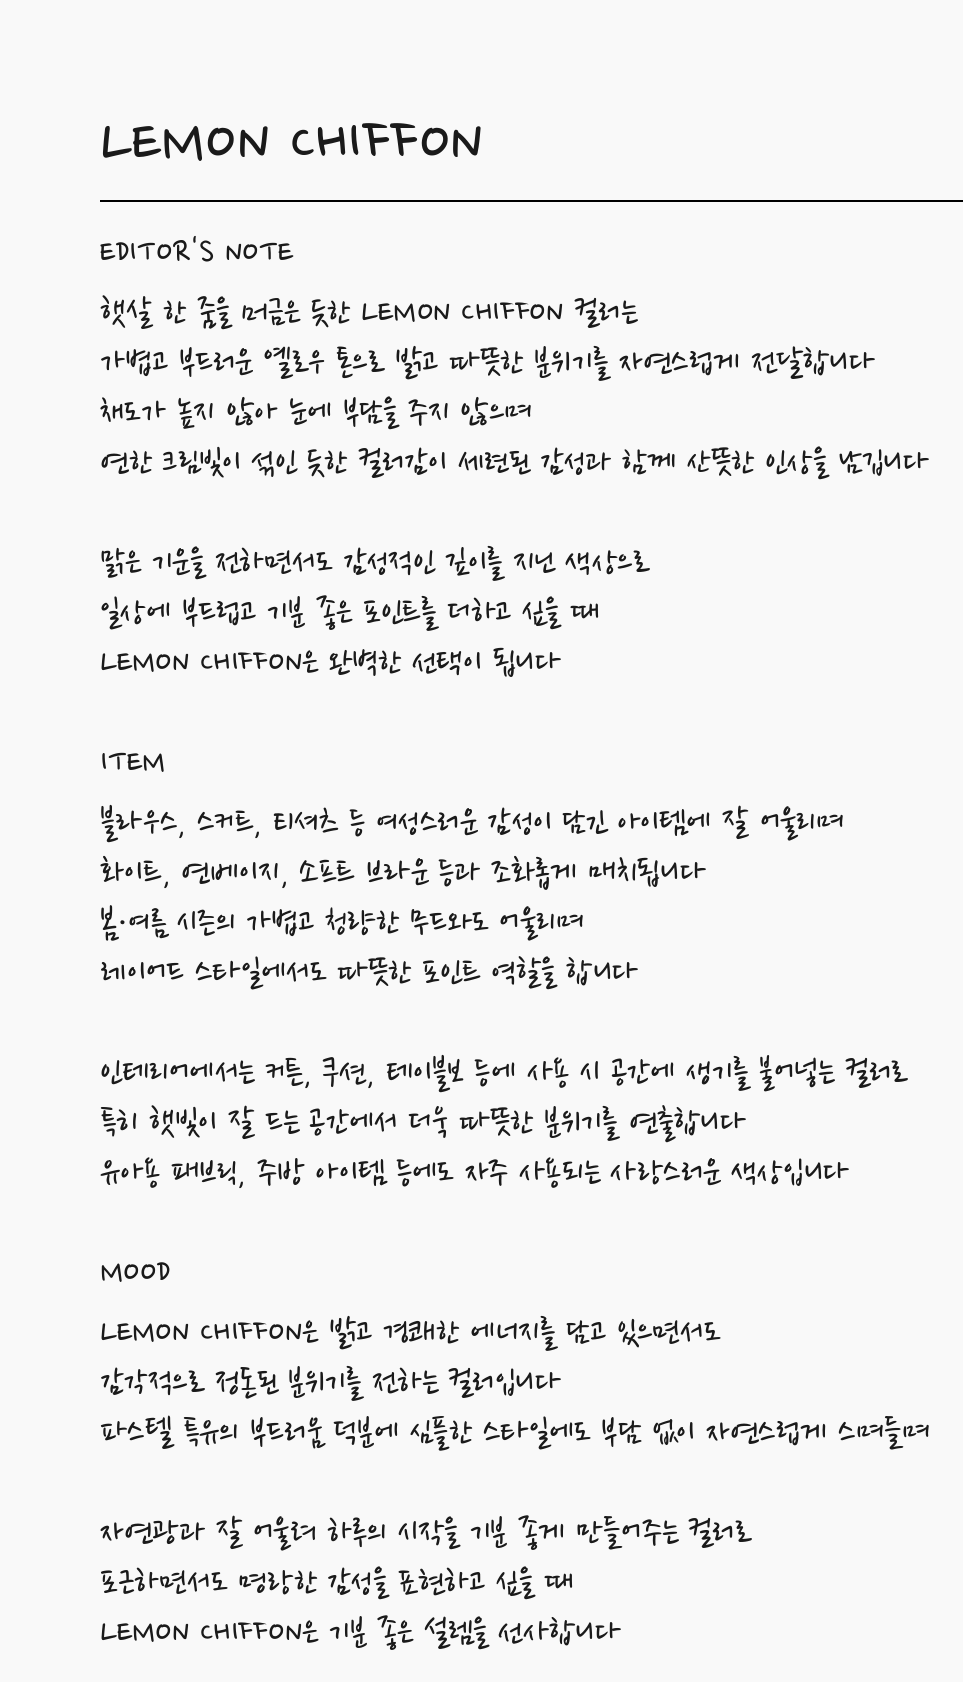 LEMON CHIFFON
EDITOR'S NOTE
햇살 한 줌을 머금은 듯한 LEMON CHIFFON 컬러는
가볍고 부드러운 옐로우 톤으로 밝고 따뜻한 분위기를 자연스럽게 전달합니다
채도가 높지 않아 눈에 부담을 주지 않으며
연한 크림빛이 섞인 듯한 컬러감이 세련된 감성과 함께 산뜻한 인상을 남깁니다
맑은 기운을 전하면서도 감성적인 깊이를 지닌 색상으로
일상에 부드럽고 기분 좋은 포인트를 더하고 싶을 때
LEMON CHIFFON은 완벽한 선택이 됩니다
ITEM
블라우스, 스커트, 티셔츠 등 여성스러운 감성이 담긴 아이템에 잘 어울리며
화이트, 연베이지, 소프트 브라운 등과 조화롭게 매치됩니다
봄·여름 시즌의 가볍고 청량한 무드와도 어울리며
레이어드 스타일에서도 따뜻한 포인트 역할을 합니다
인테리어에서는 커튼, 쿠션, 테이블보 등에 사용 시 공간에 생기를 불어넣는 컬러로
특히 햇빛이 잘 드는 공간에서 더욱 따뜻한 분위기를 연출합니다
유아용 패브릭, 주방 아이템 등에도 자주 사용되는 사랑스러운 색상입니다
MOOD
LEMON CHIFFON은 밝고 경쾌한 에너지를 담고 있으면서도
감각적으로 정돈된 분위기를 전하는 컬러입니다
파스텔 특유의 부드러움 덕분에 심플한 스타일에도 부담 없이 자연스럽게 스며들며
자연광과 잘 어울려 하루의 시작을 기분 좋게 만들어주는 컬러로
포근하면서도 명랑한 감성을 표현하고 싶을 때
LEMON CHIFFON은 기분 좋은 설렘을 선사합니다